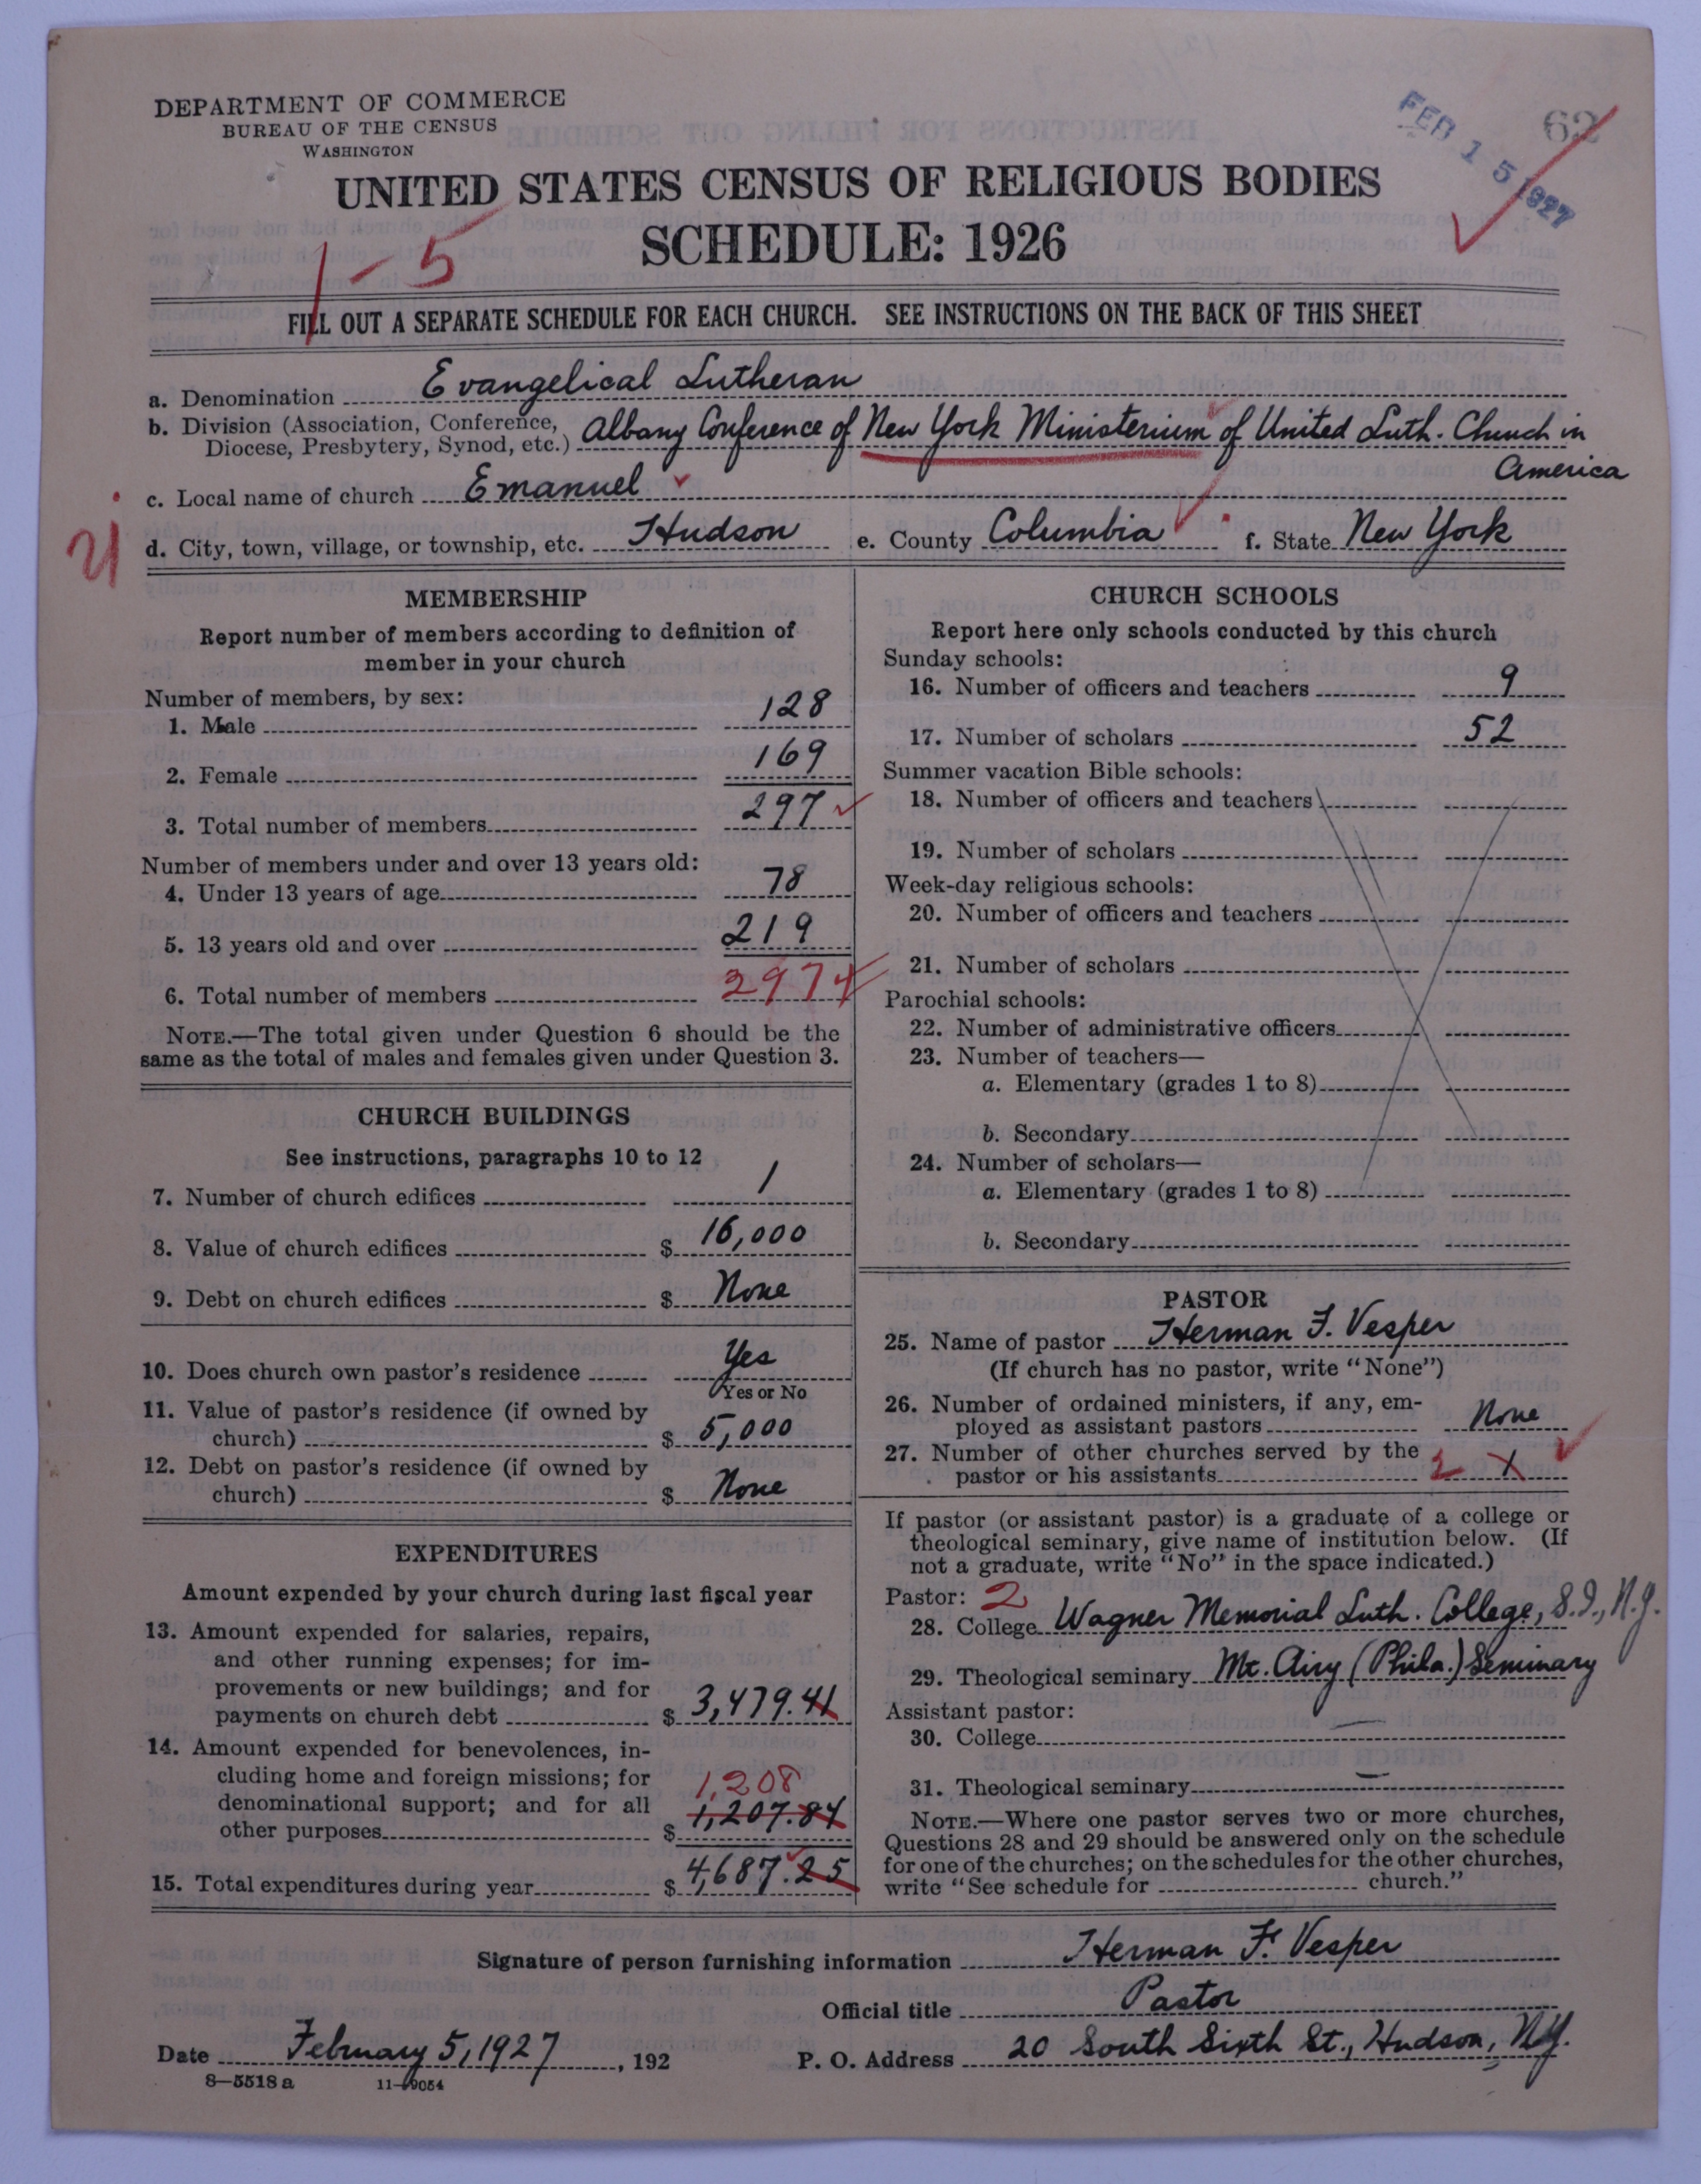 DEPARTMENT OF COMMERCE
BUREAU OF THE CENSUS
WASHINGTON
FEB 15 1927
62
UNITED STATES CENSUS OF RELIGIOUS BODIES
SCHEDULE: 1926
1-5
FILL OUT A SEPARATE SCHEDULE FOR EACH CHURCH. SEE INSTRUCTIONS ON THE BACK OF THIS SHEET
a. Denomination Evangelical Lutheran
b. Division (Association, Conference, Diocese, Presbytery, Synod, etc.) Albany Conference of New York Ministerium of United Luth. Church in America
c. Local name of church Emanuel
d. City, town, village, or township, etc. Hudson e. County Columbia f. State New York
MEMBERSHIP
Report number of members according to definition of
member in your church
Number of members, by sex:
1. Male 128
2. Female 169
3. Total number of members 297
Number of members under and over 13 years old:
4. Under 13 years of age 78
5. 13 years old and over 219
6. Total number of members 297
NOTE.—The total given under Question 6 should be the
same as the total of males and females given under Question 3.
CHURCH BUILDINGS
See instructions, paragraphs 10 to 12
7. Number of church edifices 1
8. Value of church edifices $ 16,000
9. Debt on church edifices $ None
10. Does church own pastor's residence Yes
Yes or No
11. Value of pastor's residence (if owned by
church) $ 5,000
12. Debt on pastor's residence (if owned by
church) $ None
EXPENDITURES
Amount expended by your church during last fiscal year
13. Amount expended for salaries, repairs,
and other running expenses; for im-
provements or new buildings; and for
payments on church debt $ 3,479.41
14. Amount expended for benevolences, in-
cluding home and foreign missions; for
denominational support; and for all
other purposes $ 1,207.84
1,208
15. Total expenditures during year $ 4,687.25
CHURCH SCHOOLS
Report here only schools conducted by this church
Sunday schools:
16. Number of officers and teachers 9
17. Number of scholars 52
Summer vacation Bible schools:
18. Number of officers and teachers
19. Number of scholars
Week-day religious schools:
20. Number of officers and teachers
21. Number of scholars
Parochial schools:
22. Number of administrative officers
23. Number of teachers—
a. Elementary (grades 1 to 8)
b. Secondary
24. Number of scholars—
a. Elementary (grades 1 to 8)
b. Secondary
PASTOR
25. Name of pastor Herman F. Vesper
(If church has no pastor, write "None")
26. Number of ordained ministers, if any, em-
ployed as assistant pastors None
27. Number of other churches served by the
pastor or his assistants X
If pastor (or assistant pastor) is a graduate of a college or
theological seminary, give name of institution below. (If
not a graduate, write "No" in the space indicated.)
Pastor: 2
28. College Wagner Memorial Luth. College, S.I., N.Y.
29. Theological seminary Mt. Airy (Phila.) Seminary
Assistant pastor:
30. College
31. Theological seminary
NOTE.—Where one pastor serves two or more churches,
Questions 28 and 29 should be answered only on the schedule
for one of the churches; on the schedules for the other churches,
write "See schedule for church."
Signature of person furnishing information Herman F. Vesper
Official title Pastor
Date February 5, 1927, 192
P. O. Address 20 South Sixth St., Hudson, N.Y.
8—5518 a 11-9054